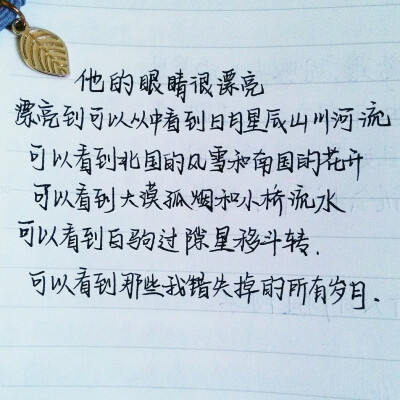 他的眼睛很漂亮
漂亮到可以从中看到日月星辰山川河流
可以看到北国的风雪和南国的花开
可以看到大漠孤烟和小桥流水
可以看到白驹过隙星移斗转.
可以看到那些我错失掉的所有岁月.